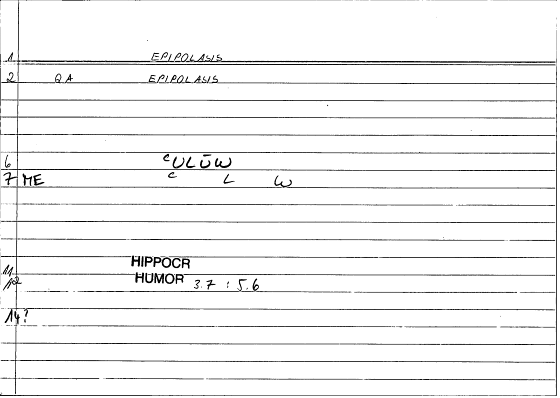 1 EPIPOLASIS
2 QA EPIPOLASIS
6 ᶜULŪW
7 ME C L W
11 HIPPOCR
12 HUMOR 3.7 : 5.6
14?